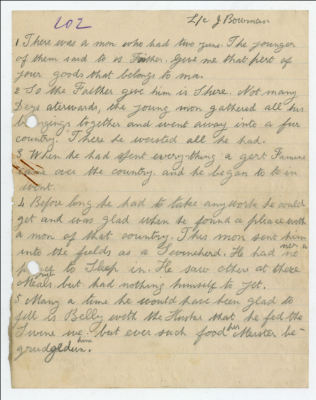 L/c J Bowman
102
1 There was a man who had two
The younger
of them said to is Faither. Give me that pert of
your goods that belongs to me.
2 So the Faither give him is Share. Not many
Deys aterwards, the young mon gathered all his
belongings together and went away into a fur
country. There he wersted all he had.
3 When he had spent everything a gert Famine
came over the country. and he began to be in
went.
4 Before long he had to take any work he could
get and was glad when he found a place with
a mon of that country. This mon sent him
into the fields as a Swineherd. He had no
to Sleep in. He saw others at there
Meals but had nothing himself to yet.
5 Many a time he would have been glad to
fill is Belly with the Husks that he fed the
Swine we. but ever such food her Meister be-
grudgedun him.